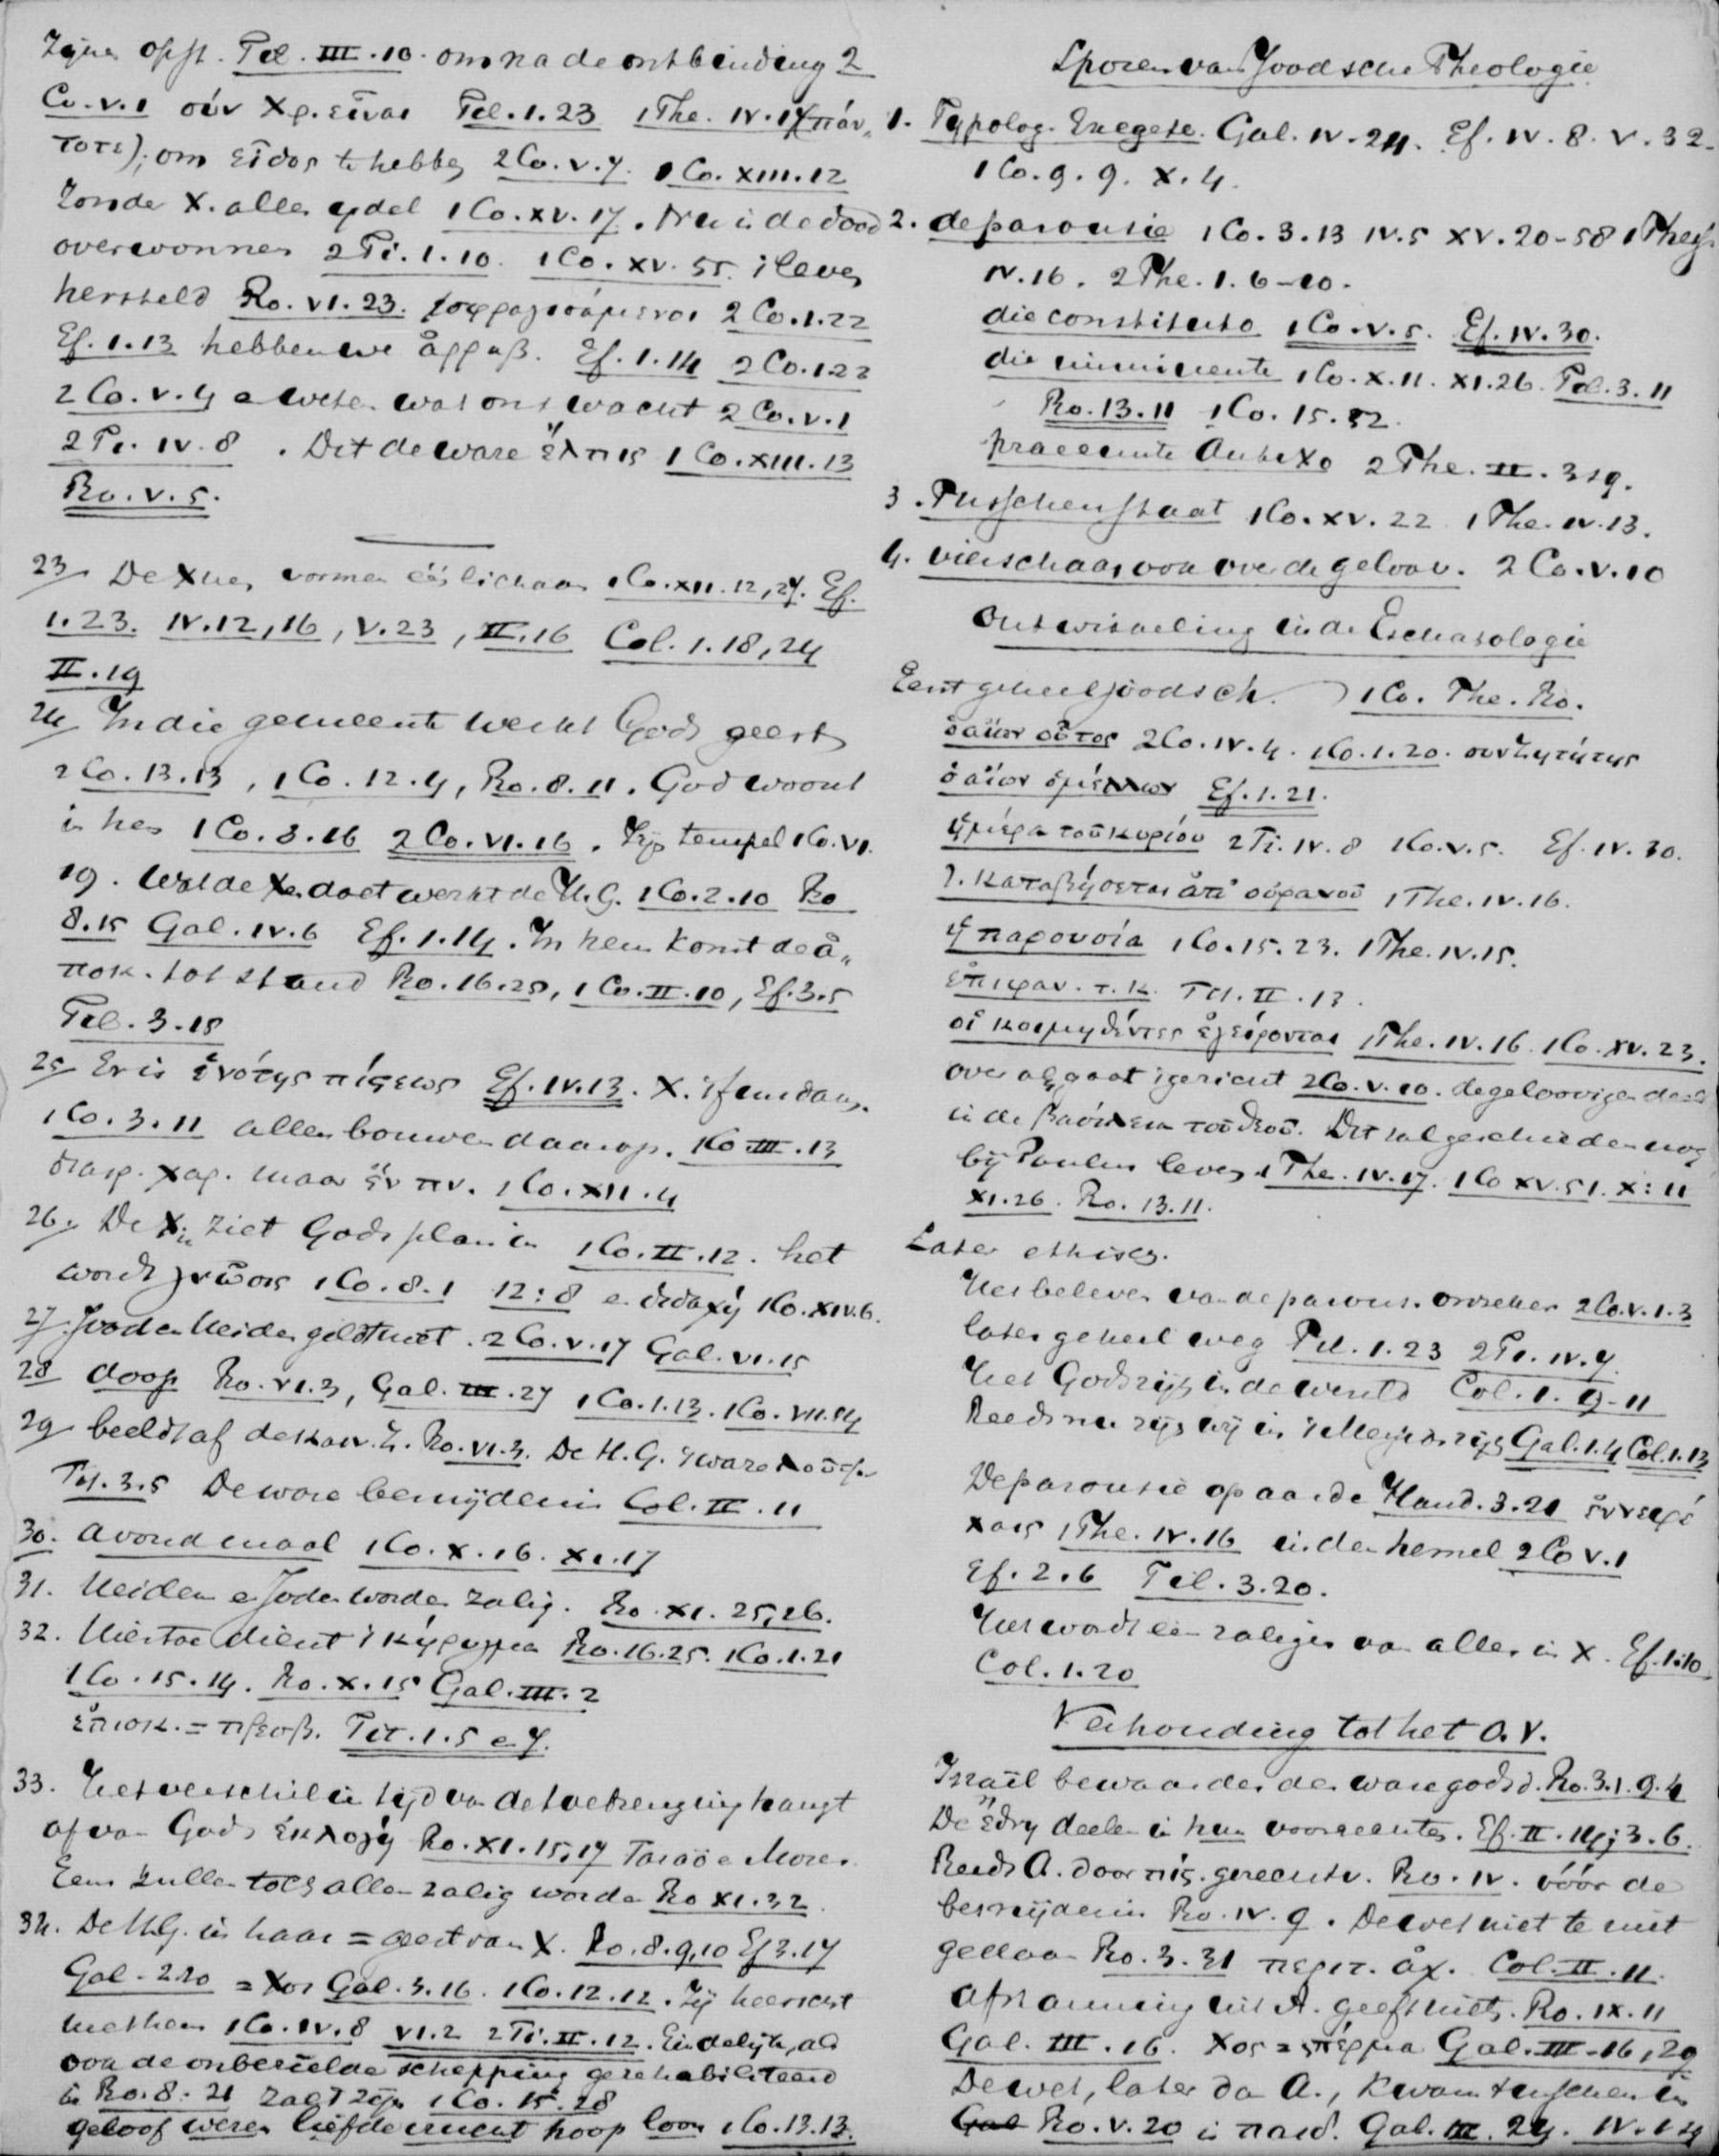 Zijne opst. Fil. III.10. om na de ontbinding 2
Co.V.1 σύν Χρ. εἶναι Fil.1.23 1The. IV.17 (πάν„
τοτε); om εἶδος te hebben 2Co.V.7. 1Co.XIII.12
Zonder X. alles ijdel 1Co.XV.17. Nu is de dood
overwonnen 2Ti.1.10. 1Co.XV.55. 't leven
hersteld Ro.VI.23. σφραγισάμενοι 2Co.1.22
Ef.1.13 hebben we ἀρραβ. Ef.1.14 2Co.1.22
2Co.V.4 en weten wat ons wacht 2Co.V.1
2Ti.IV.8. Dit de ware ἔλπις 1Co.XIII.13
Ro.V.5.
23 De Xnen vormen één lichaam 1Co.XII.12,27. Ef.
1.23. IV.12,16, V.23, II.16 Col.1.18,24
II.19
24 In die gemeente werkt Gods geest
2Co.13.13, 1Co.12.4, Ro.8.11. God woont
in hen 1Co.3.16 2Co.VI.16. Zijn tempel 1Co.VI.
19. Wat de Xen doet werkt de H.G. 1Co.2.10 Ro
8.15 Gal.IV.6 Ef.1.14. In hem komt de ἀ„
ποκ. tot stand Ro.16.25, 1Co.II.10, Ef.3.5
Fil.3.15
25 Er is ἑνότης πίστεως Ef.IV.13. X. 't fundam.
1Co.3.11 allen bouwen daarop. 1Co III.13
διαιρ. χαρ. maar ἓν πν. 1Co.XII.4
26. De Xen ziet Gods plan in 1Co.II.12. het
wordt γνῶσις 1Co.8.1 12:8 en διδαχή 1Co.XIV.6.
27. Jood en Heiden geldt niet. 2Co.V.17 Gal.VI.15
28 doop Ro.VI.3, Gal.III.27 1Co.1.13. 1Co.VII.14
29 beeldt af Ro.VI.3. De H.G. 't ware
Tit.3.5 De ware besnijdenis Col.II.11
30. avondmaal 1Co.X.16. XI.17
31. Heiden en Joden worden zalig. Ro.XI.25,26.
32. Hiertoe dient 't κήρυγμα Ro.16.25. 1Co.1.21
1Co.15.14. Ro.X.15 Gal.III.2
ἐπισκ. = πρεσβ. Tit.1.5 en 7.
33. Het verschil in tijd van de toebrenging hangt
af van Gods ἐκλογή Ro.XI.15,17 Farao en Mozes.
Eens zullen toch allen zalig worden Ro XI.32.
34. De H.G. in haar = geest van X. Ro.8.9,10 Ef 3.17
Gal.2.20 = Χος Gal.3.16. 1Co.12.12. Zij heerscht
met hem 1Co.IV.8 VI.2 2Ti.II.12. Eindelijk, als
ook de onbezielde schepping gerehabiliteerd
is Ro.8.21 zal 't zijn 1Co.15.28
geloof weten liefde hoop loon 1Co.13.13.
Sporen van Joodsche Theologie
1. Typolog. Exegese. Gal.IV.24. Ef.IV.8. V.32.
1Co.9.9. X.4.
2. de parousie 1Co.3.13 IV.5 XV.20-58 1Thess
IV.16. 2The.1.6-10.
die constituto 1Co.V.5. Ef.IV.30.
die imminente 1Co.X.11. XI.26. Fil.3.11
Ro.13.11 1Co.15.52.
praeeunte AntiXo 2The.II.3 sq.
3. Tusschenstaat 1Co.XV.22 1The.IV.13.
4. vierschaar ook over de geloov. 2Co.V.10
Ontwikkeling in de Eschatologie
Eerst geheel Joodsch. 1Co. The. Ro.
ὁ αἰων οὗτος 2Co.IV.4. 1Co.1.20. συνζητήτης
ὁ αἰων ὁ μέλλων Ef.1.21.
ἡμέρα τοῦ κυρίου 2Ti.IV.8 1Co.V.5. Ef.IV.30.
'I. καταβήσεται ἀπ' οὐρανοῦ 1The.IV.16.
ἡ παρουσία 1Co.15.23. 1The.IV.15.
ἐπιφαν. τ. κ. Tit.II.13.
οἱ κοιμηθέντες ἐγείρονται 1The.IV.16. 1Co.XV.23.
over allen gaat 't gericht 2Co.V.10. de geloovigen deelen
in de βασιλεια τοῦ θεοῦ. Dit zal geschieden nog
bij Paulus leven 1The.IV.17. 1Co XV.51. X:11
XI.26. Ro.13.11.
Later ethisch.
Het beleven van de parous. onzeker 2Co.V.1.3
later geheel weg Fil.1.23 2Ti.IV.7
Het Godsrijk in de wereld Col.1.9-11
Reeds nu zijn wij in 't Messias rijk Gal.1.4 Col.1.13
De parousie op aarde Hand.3.21 ἐν νεφέ
λαις 1The.IV.16 in den hemel 2Co V.1
Ef.2.6 Fil.3.20.
Het wordt een zaligen van allen in X. Ef.1.10
Col.1.20
Verhouding tot het O.V.
Israël bewaarder der ware godsd. Ro.3.1. 9.4
De ἔθνη deelen in hun voorrechten. Ef.II.14; 3.6.
Reeds A. door πίς. gerechtv. Ro.IV. vóór de
besnijdenis Ro.IV.9. De wet niet te niet
gedaan Ro.3.31 περιτ. ἀχ. Col.II.11.
Afstamming uit A. geeft niets. Ro.IX.11
Gal.III.16. Χος = σπέρμα Gal.III.16,29
De wet, later dan A., kwam tusschen in
Ro.V.20 is παιδ. Gal.III.24. IV.1-4